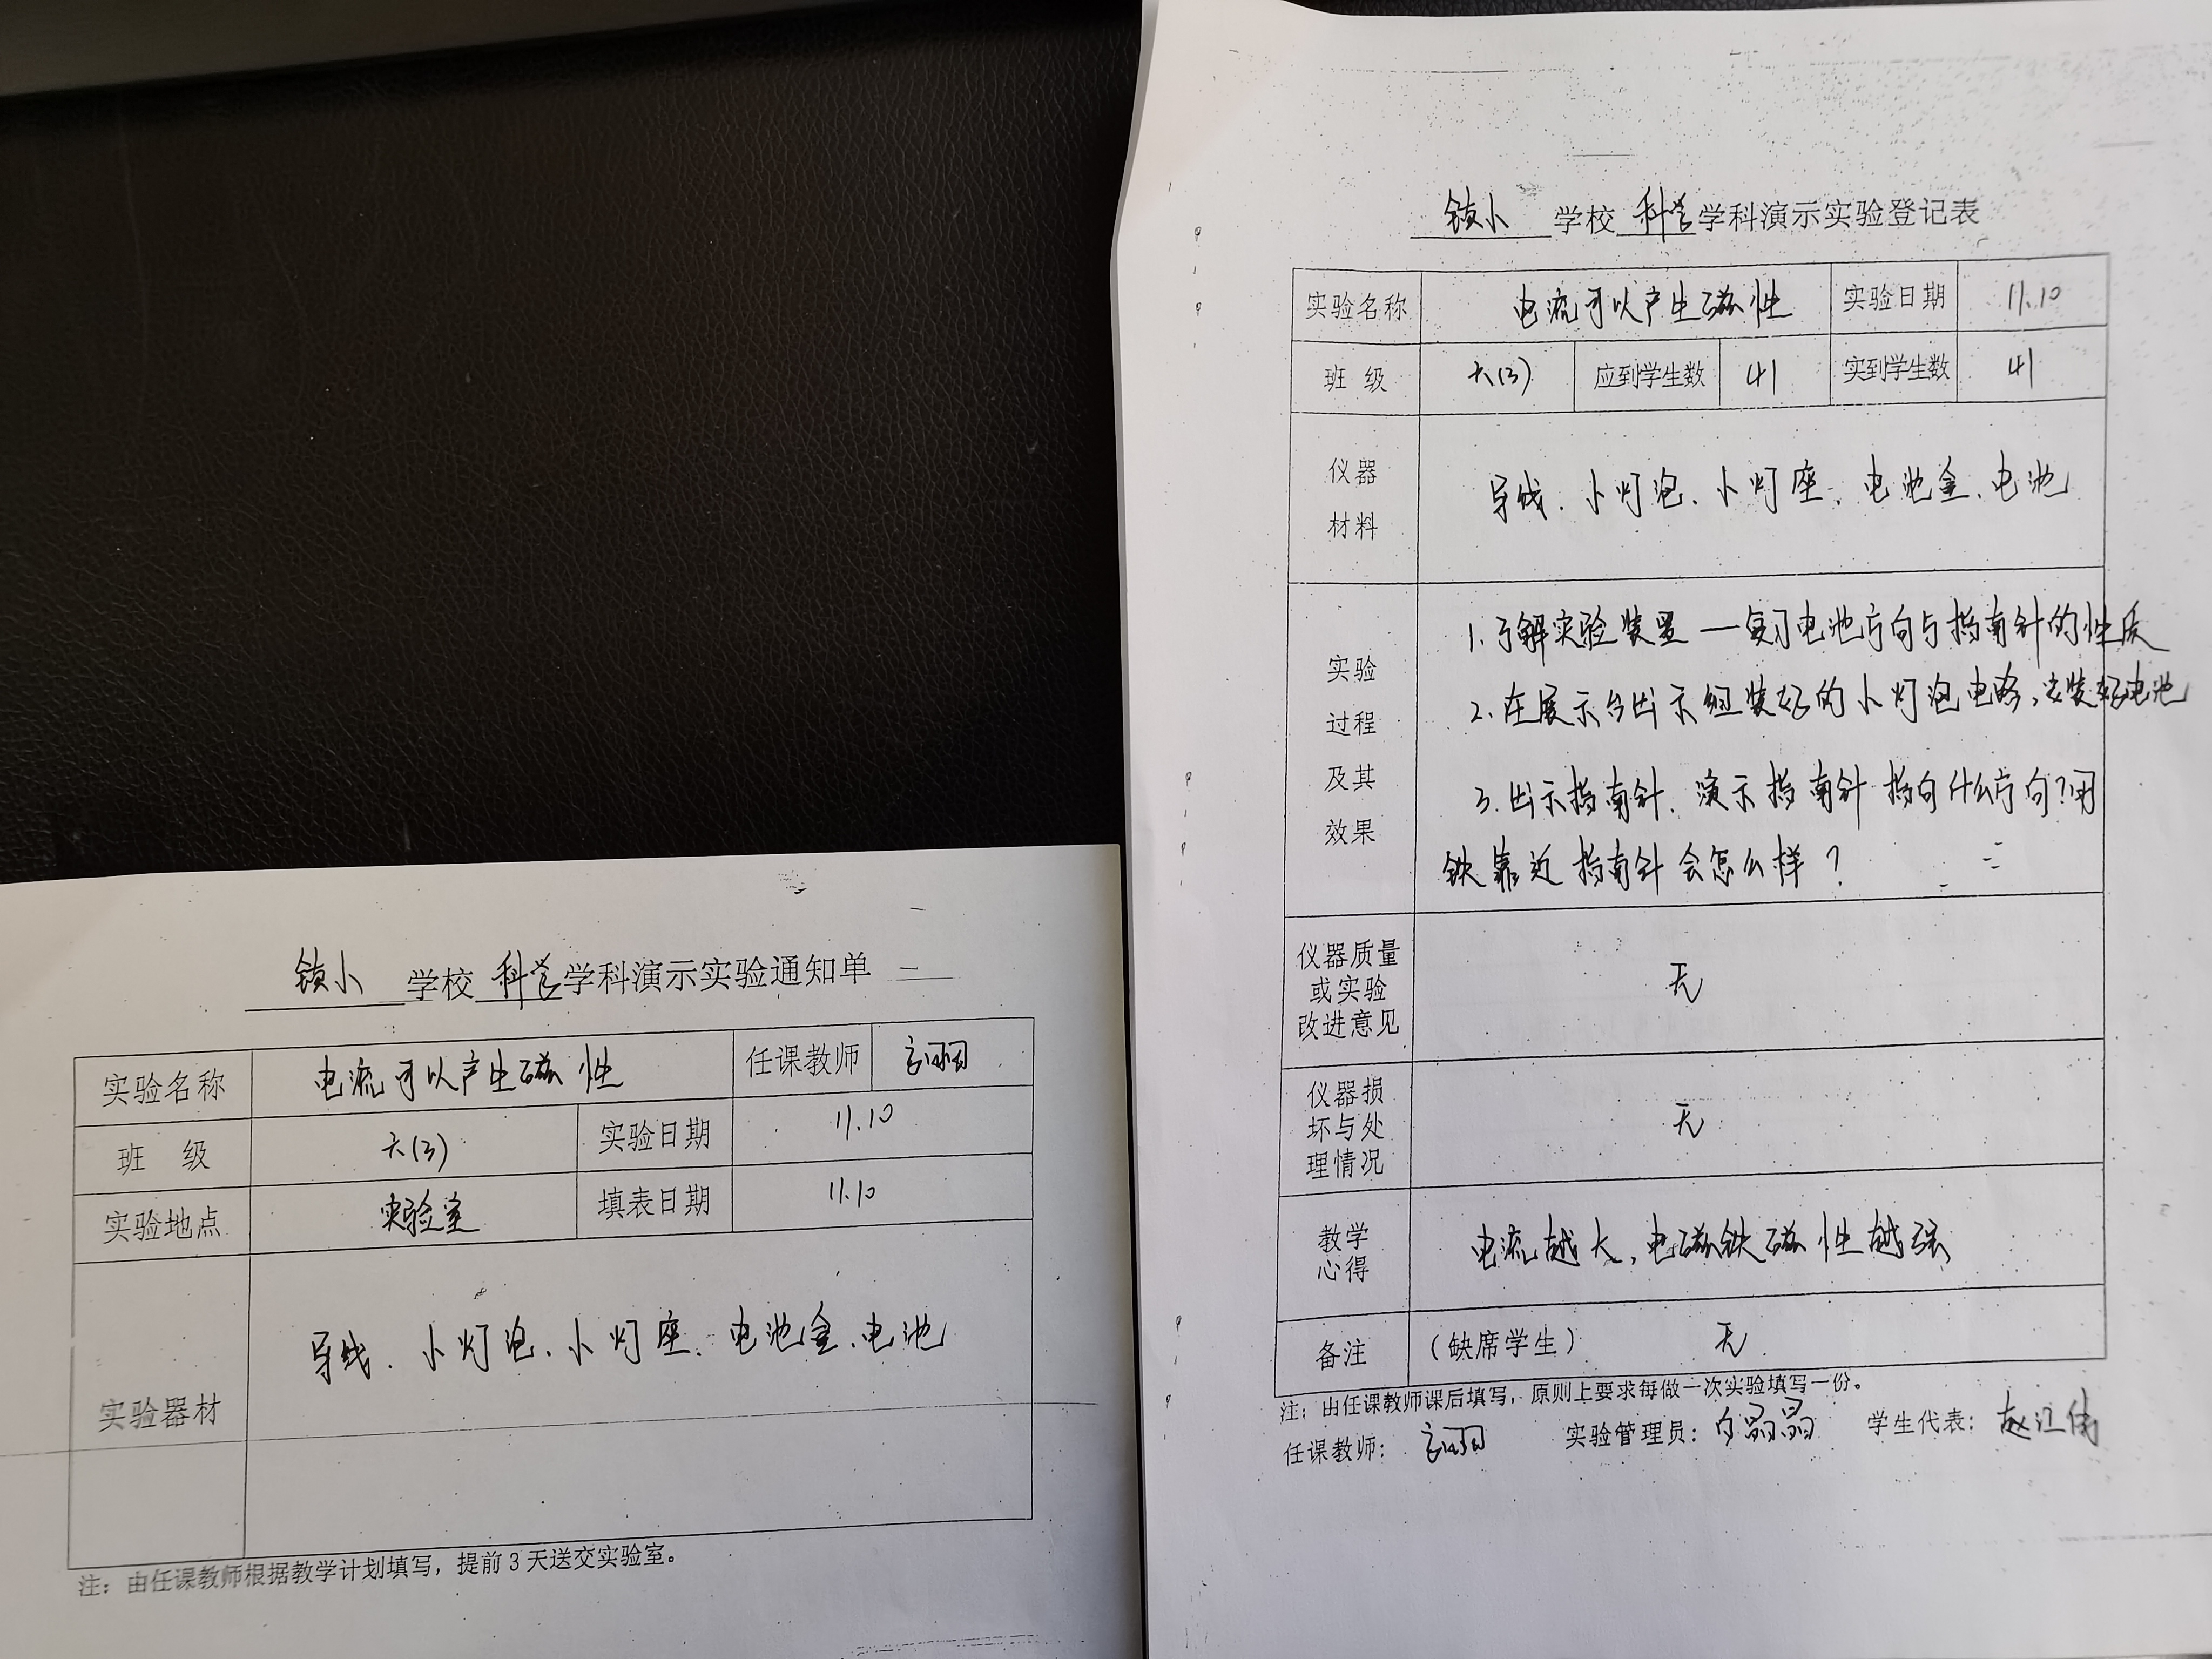 镇小学校科学学科演示实验通知单
实验名称 电流可以产生磁性 任课教师
班 级 六(3) 实验日期 11.10
实验地点 实验室 填表日期 11.10
实验器材 导线、小灯泡、小灯座、电池盒、电池
注：由任课教师根据教学计划填写，提前3天送交实验室。
镇小学校科学学科演示实验登记表
实验名称 电流可以产生磁性 实验日期 11.10
班 级 六(3) 应到学生数 41 实到学生数 41
仪器
材料
导线、小灯泡、小灯座、电池盒、电池
实验
过程
及其
效果
1.了解实验装置一复习电池方向与指南针的性质
2.在展示台出示组装好的小灯泡电路,安装好电池
3.出示指南针.演示指南针指向什么方向?用
铁靠近指南针会怎么样?
仪器质量
或实验
改进意见
无
仪器损
坏与处
理情况
无
教学
心得
电流越大,电磁铁磁性越强
备注 （缺席学生） 无
注：由任课教师课后填写，原则上要求每做一次实验填写一份。
任课教师： 实验管理员：白晶晶 学生代表：赵江伟